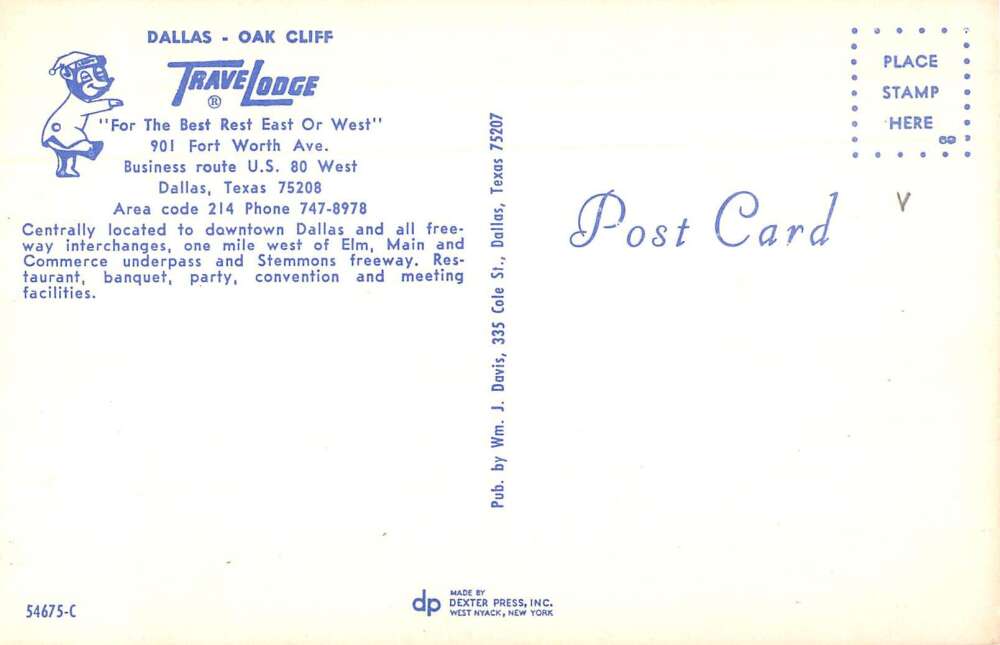 DALLAS - OAK CLIFF
TRAVELODGE
®
"For The Best Rest East Or West"
901 Fort Worth Ave.
Business route U.S. 80 West
Dallas, Texas 75208
Area code 214 Phone 747-8978
Centrally located to downtown Dallas and all free-
way interchanges, one mile west of Elm, Main and
Commerce underpass and Stemmons freeway. Res-
taurant, banquet, party, convention and meeting
facilities.
54675-C
Pub. by Wm. J. Davis, 335 Cole St., Dallas, Texas 75207
dp
MADE BY
DEXTER PRESS, INC.
WEST NYACK, NEW YORK
PLACE
STAMP
HERE
Post Card
Y